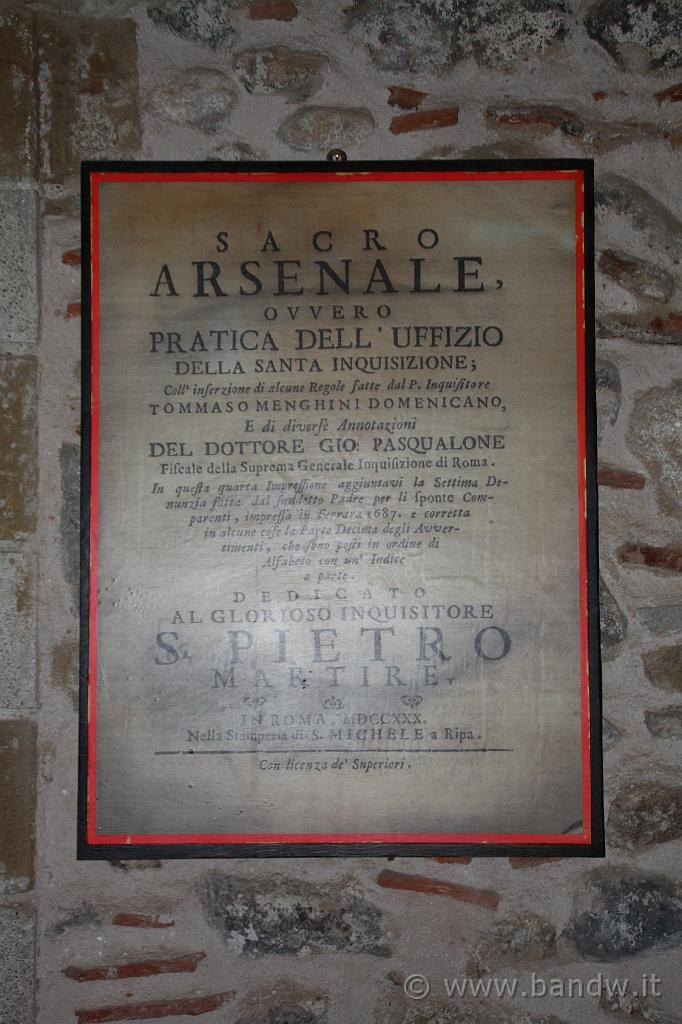 SACRO
ARSENALE,
OVVERO
PRATICA DELL' UFFIZIO
DELLA SANTA INQUISIZIONE;
Coll' inſerzione di alcune Regole fatte dal P. Inquiſitore
TOMMASO MENGHINI DOMENICANO,
E di diverſe Annotazioni
DEL DOTTORE GIO: PASQUALONE
Fiſcale della Suprema Generale Inquiſizione di Roma.
In queſta quarta Impreſſione aggiuntavi la Settima De-
nunzia fatta dal ſuddetto Padre per li ſponte Com-
parenti, impreſſa in Ferrara 1687. e corretta
in alcune coſe la Parte Decima degli Avver-
timenti, che ſono poſti in ordine di
Alfabeto con un' Indice
a parte.
DEDICATO
AL GLORIOSO INQUISITORE
S. PIETRO
MARTIRE.
IN ROMA, MDCCXXX.
Nella Stamperia di S. MICHELE a Ripa.
Con licenza de' Superiori.
© www.bandw.it